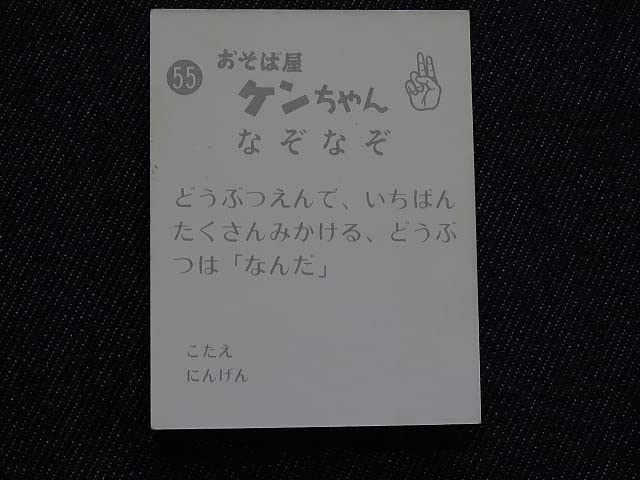 55
おそば屋
ケンちゃん
なぞなぞ
どうぶつえんで、いちばん
たくさんみかける、どうぶ
つは「なんだ」
こたえ
にんげん